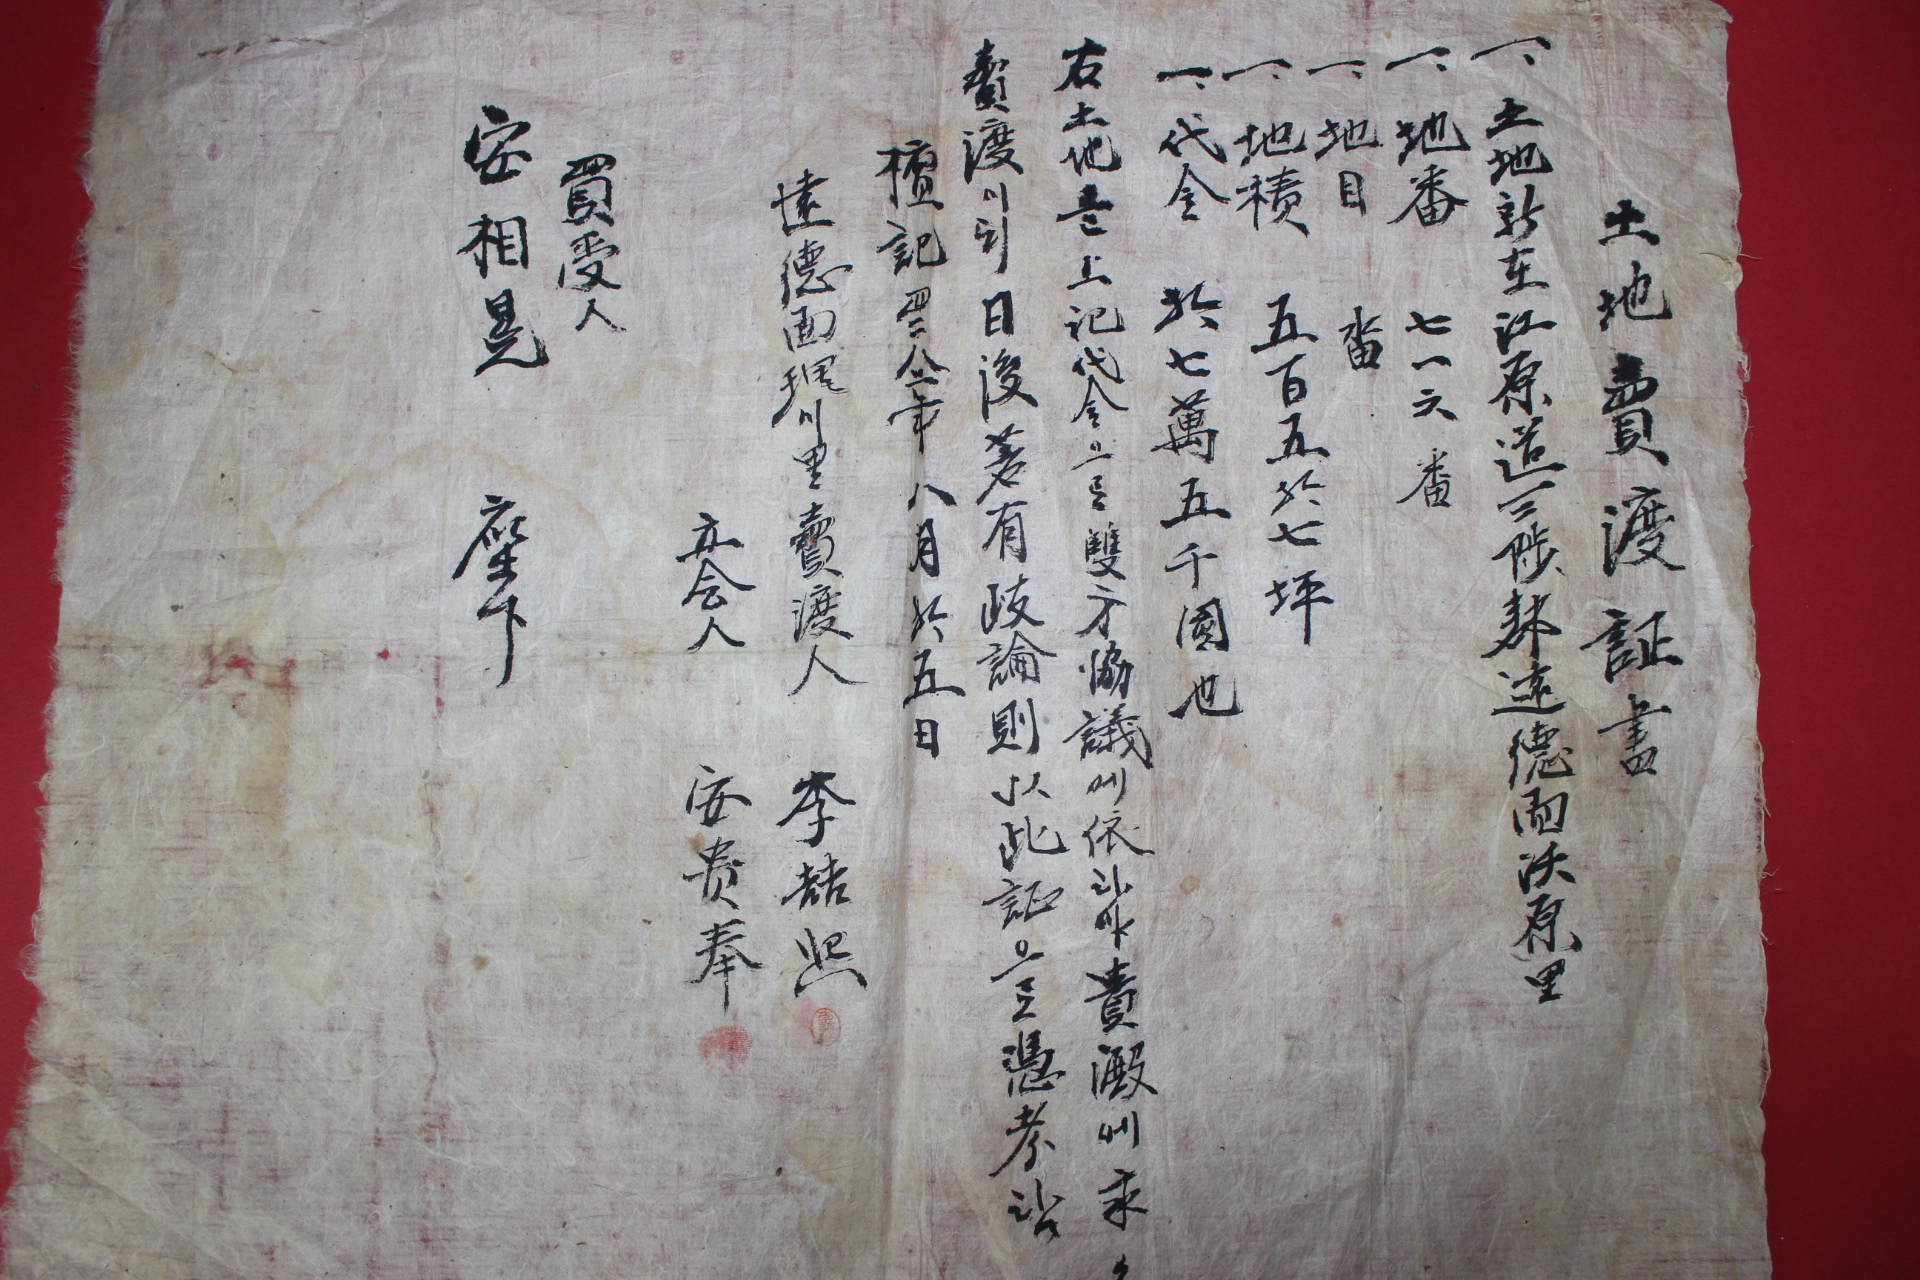 土地賣渡証書
一、土地所在江原道三陟郡遠德面沃原里
一、地番 七一六番
一、地目 畓
一、地積 五百五拾七坪
一、代金 拾七萬五千圜也
右土地를 上記代金으로 雙方協議에 依하야 貴殿에 永
賣渡이되 日後若有岐論則以此証으로 憑考할
檀記四二八八年八月拾五日
遠德面 里 賣渡人 李喆熙
立会人 安贵奉
買受人
安相晃 座下